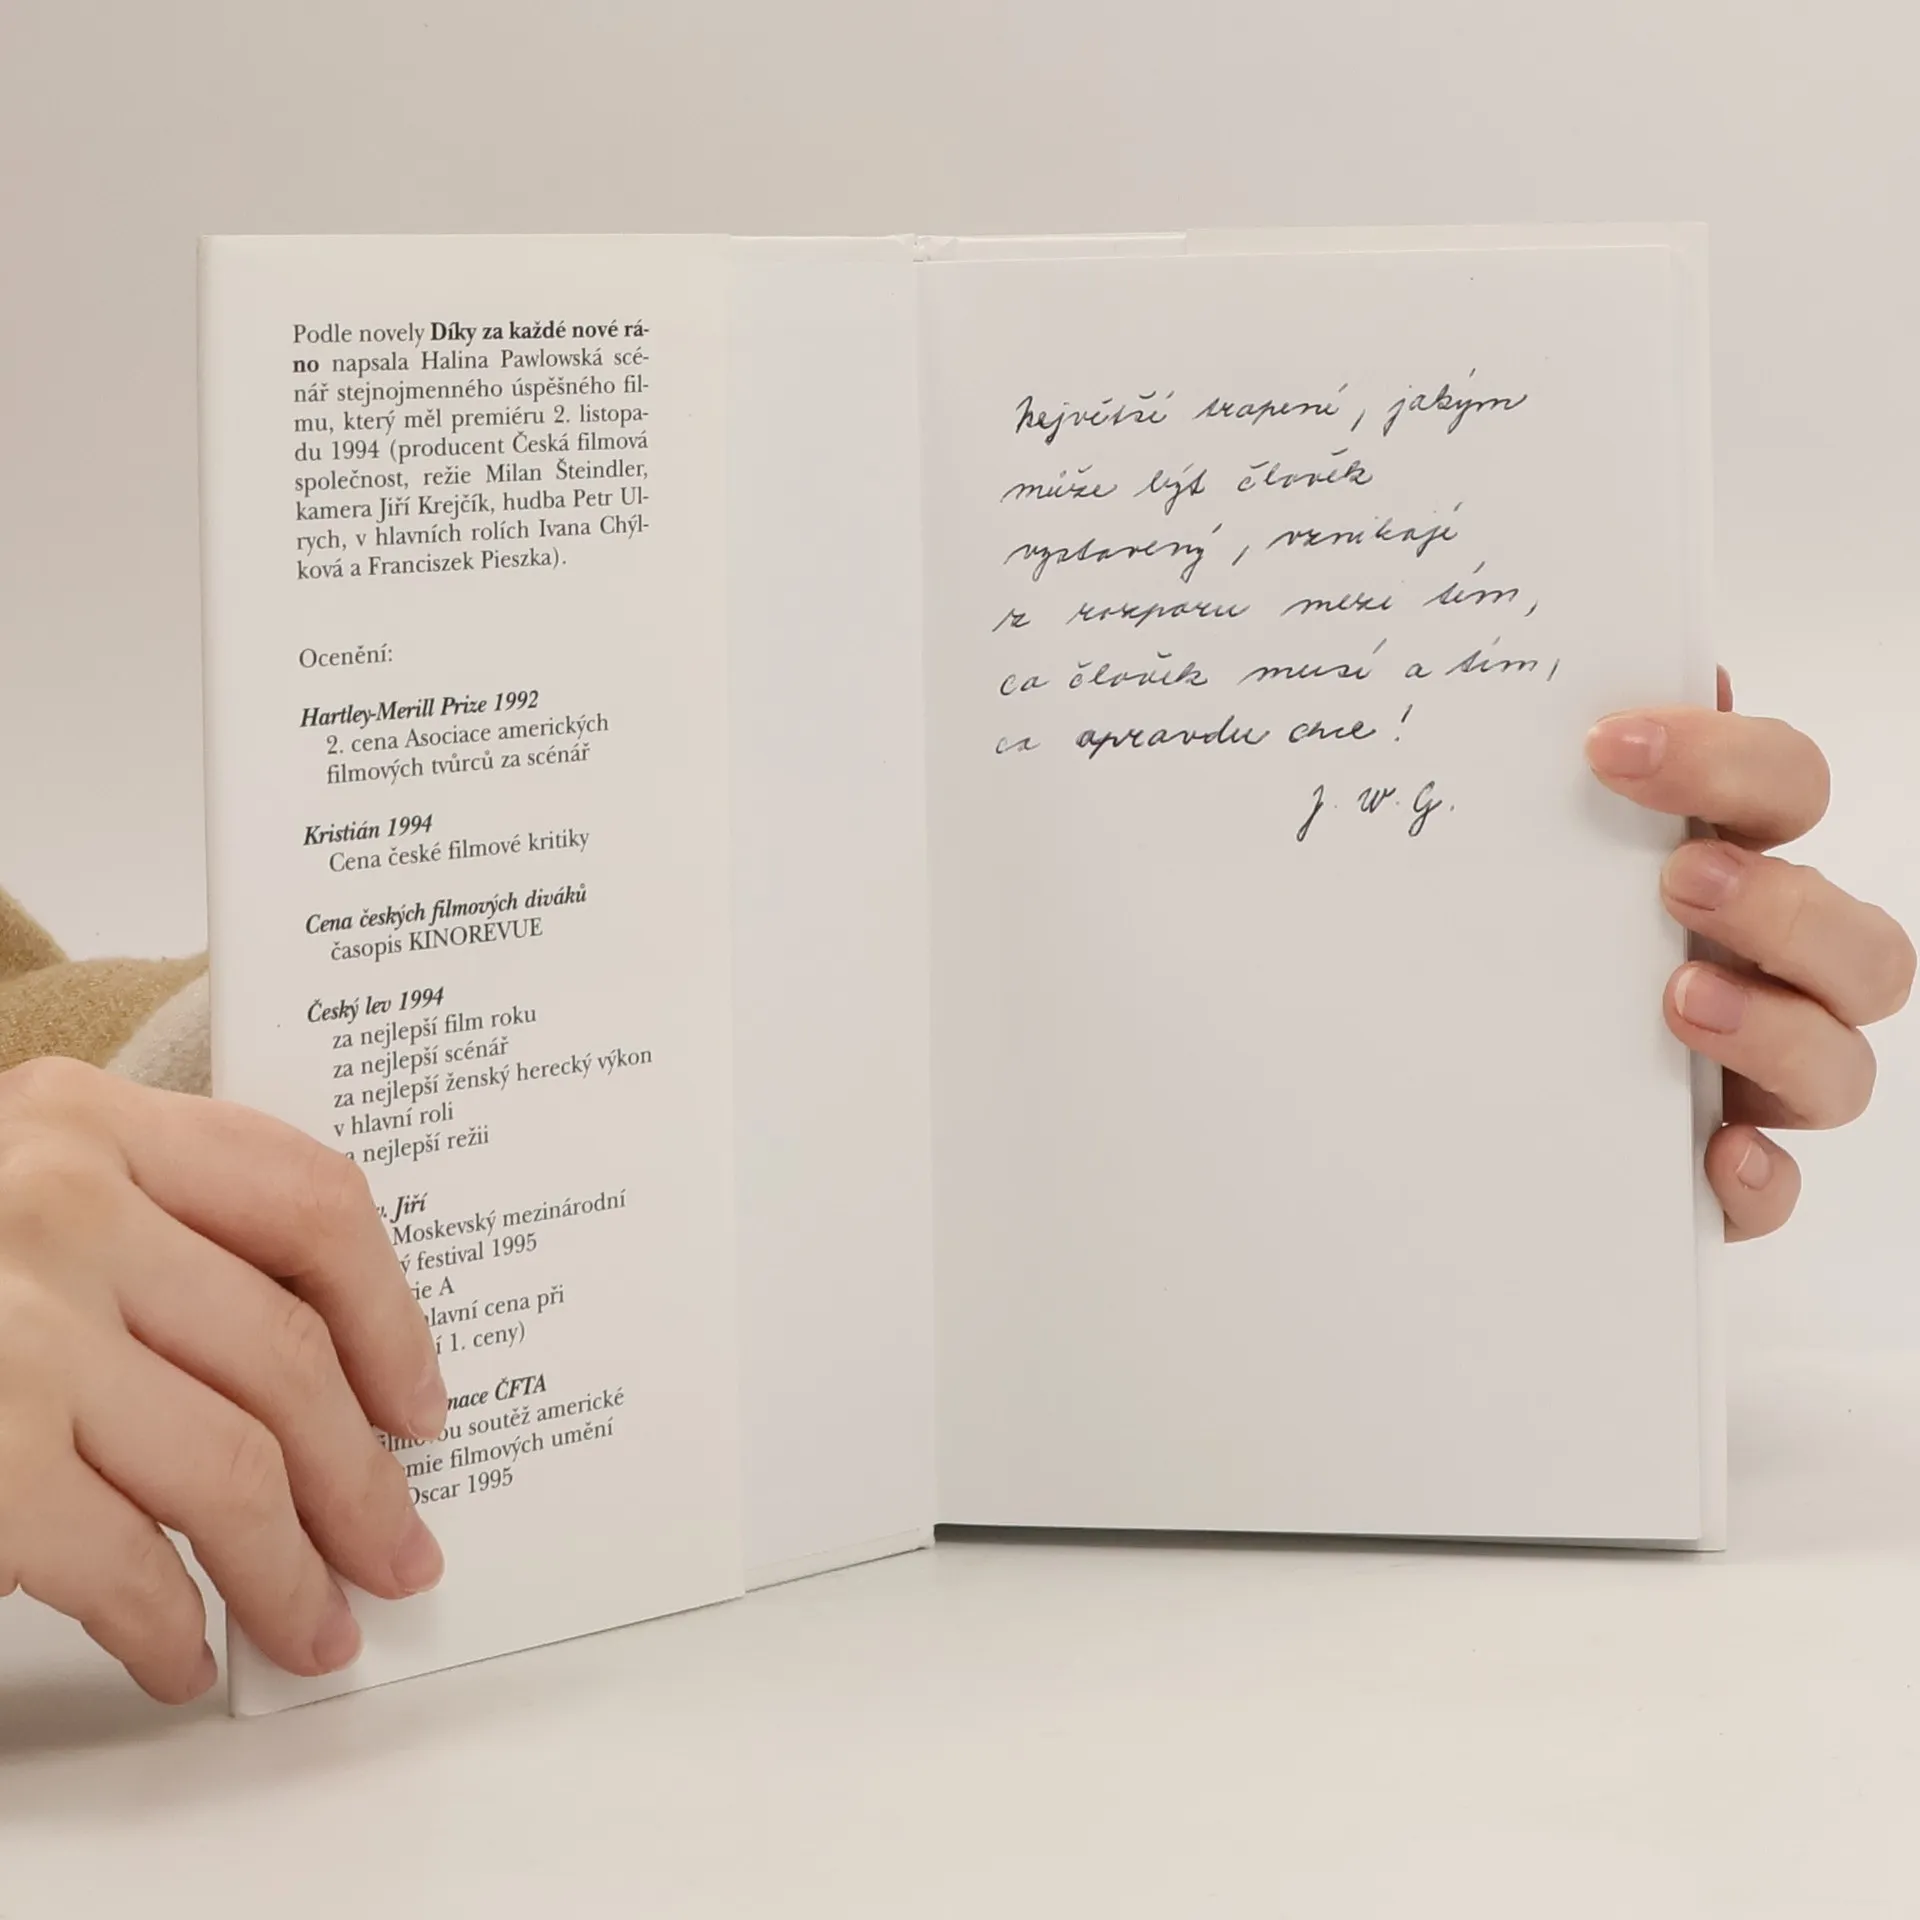 Podle novely Díky za každé nové rá-
no napsala Halina Pawlowská scé-
nář stejnojmenného úspěšného fil-
mu, který měl premiéru 2. listopa-
du 1994 (producent Česká filmová
společnost, režie Milan Šteindler,
kamera Jiří Krejčík, hudba Petr Ul-
rych, v hlavních rolích Ivana Chýl-
ková a Franciszek Pieszka).
Ocenění:
Hartley-Merill Prize 1992
2. cena Asociace amerických
filmových tvůrců za scénář
Kristián 1994
Cena české filmové kritiky
Cena českých filmových diváků
časopis KINOREVUE
Český lev 1994
za nejlepší film roku
za nejlepší scénář
za nejlepší ženský herecký výkon
v hlavní roli
nejlepší režii
Jiří
Moskevský mezinárodní
festival 1995
A
cena při
1. ceny)
ČFTA
soutěž americké
filmových umění
Oscar 1995
Největší trapení, jakým
může být člověk
vystavený, vznikají
z rozporu mezi tím,
co člověk musí a tím,
co opravdu chce!
J. W. G.